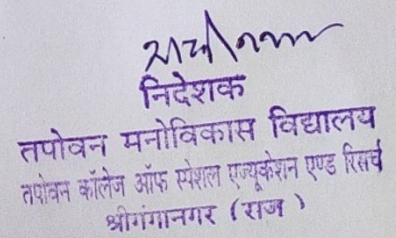 निदेशक
तपोवन मनोविकास विद्यालय
तपोवन कॉलेज ऑफ स्पेशल एज्यूकेशन एण्ड रिसर्च
श्रीगंगानगर (राज)